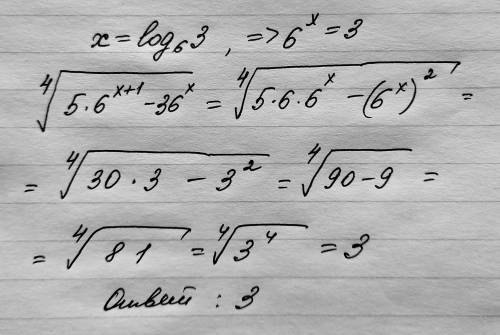 x = log₆3 , => 6ˣ = 3
⁴√(5·6ˣ⁺¹ - 36ˣ) = ⁴√(5·6·6ˣ - (6ˣ)²) =
= ⁴√(30·3 - 3²) = ⁴√(90 - 9) =
= ⁴√81 = ⁴√(3⁴) = 3
Ответ : 3